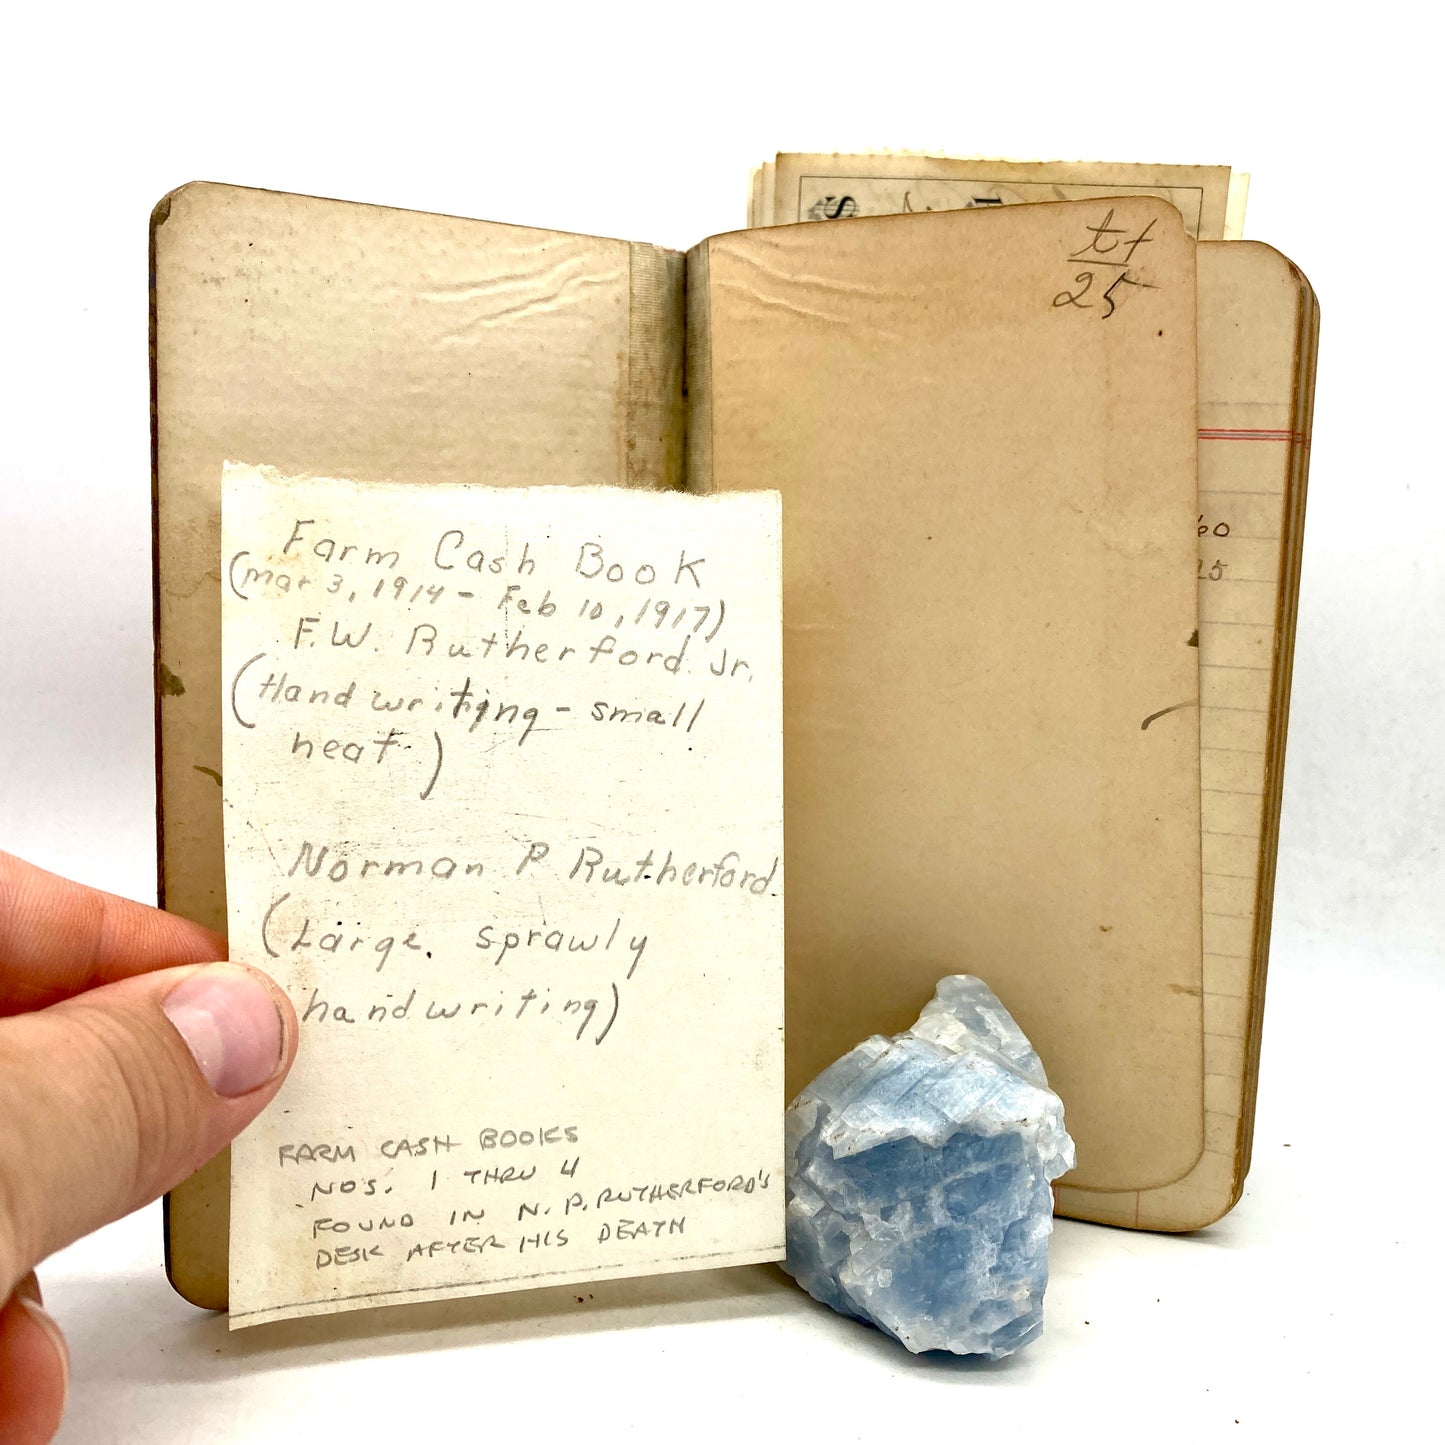 Farm Cash Book
(Mar 3, 1914 - Feb 10, 1917)
F.W. Rutherford Jr.
(Handwriting - small
neat)
Norman P Rutherford
(Large, sprawly
handwriting)
FARM CASH BOOKS
NOS. 1 THRU 4
FOUND IN N.P. RUTHERFORD'S
DESK AFTER HIS DEATH
25
60